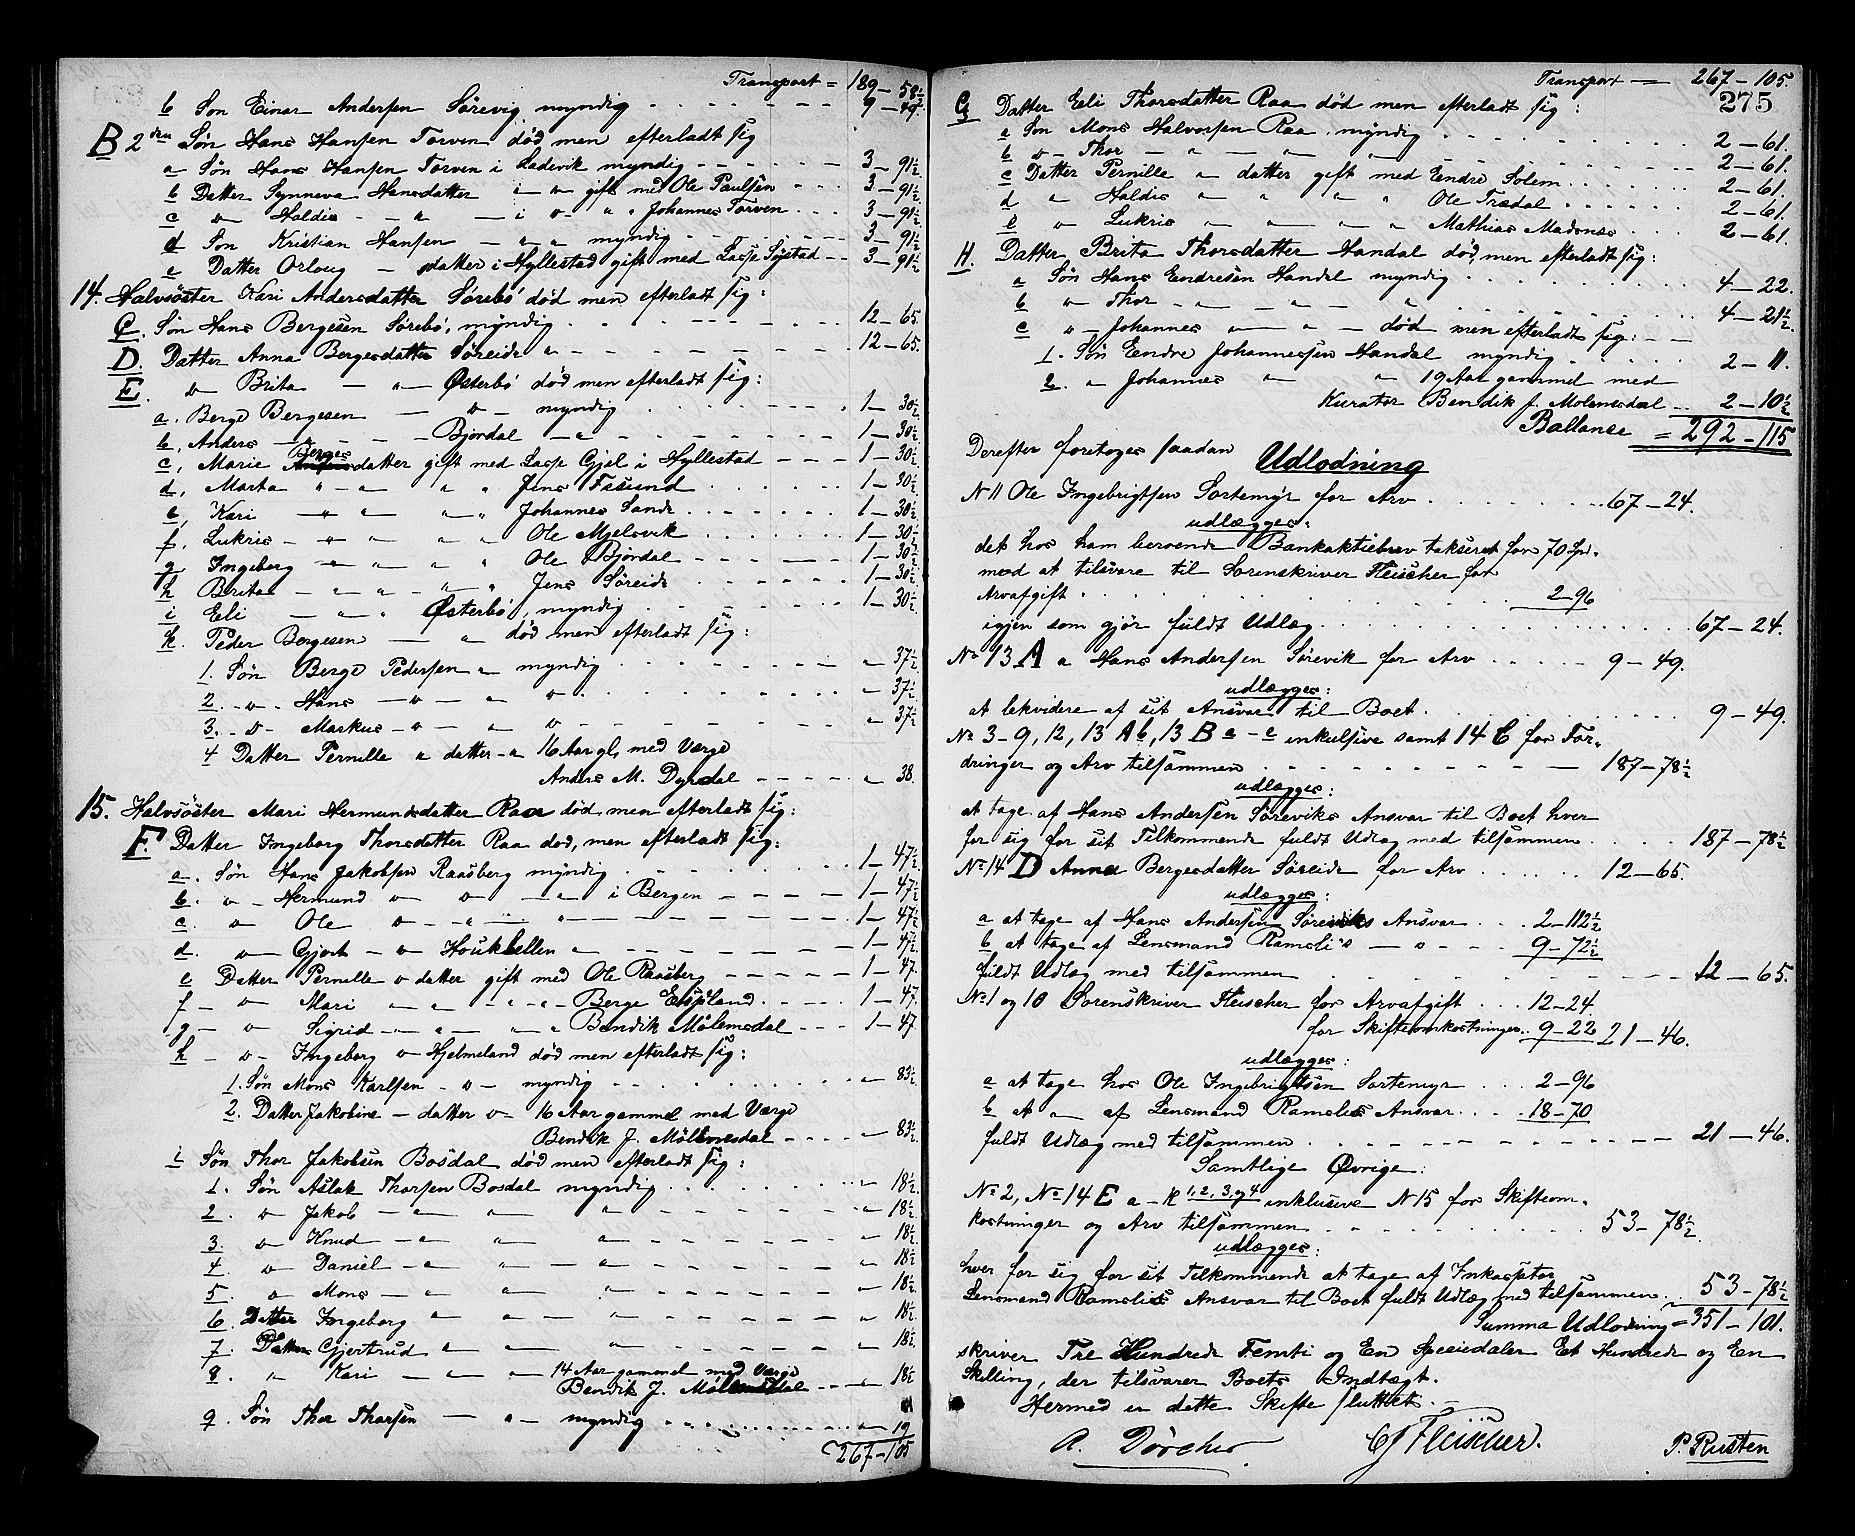 Transport = 189 - 58½
b Søn Einar Andersen Sørevig myndig . . . . . . . 9 - 49.
B 2den Søn Hans Hansen Torven død men efterladt sig
a Søn Hans Hansen Torven i Ladevik myndig - - - - - 3 - 91½
b Datter Synneva Hansdatter i - " gift med Ole Paulsen - - - 3 - 91½
c " Haldis - - " - i " " " Johannes Torven . . . 3 - 91½
d Søn Kristian Hansen - " " myndig - - - - - - - 3 - 91½
e Datter Orloug - datter i Hyllestad gift med Lasse Systad - - 3 - 91½
14. Halvsøster Kari Andersdatter Sørebø død men efterladt sig:
C. Søn Hans Bergesen Sørebø, myndig . . . . . . . 12 - 65.
D. Datter Anna Bergesdatter Søreide " - - - - - - - 12 - 65.
E. " Brita - " - Østerbø død men efterladt sig:
a. Berge Bergesen - " - myndig . . . . . . . 1 - 30½
b, Anders - " - - - Bjordal - " - - - - - - 1 - 30½
c, Marie Bergesdatter gift med Lasse Gjel i Hyllestad - - - 1 - 30½
d, Marta " - " " " Jens Tsund . . . . . . 1 - 30½
e, Kari - " - " " " Johannes Sande . . . . . . 1 - 30½
f, Lukris - " - " " " Ole Mjelsvik . . . . . . 1 - 30½
g Ingeberg " - " " " Ole Bjordal - - - - - - 1 - 30½
h Brita - " - " - " " Jens Søreide . . . . . . 1 - 30½
i Eli - " " Østerbø, myndig . . . . . . . 1 - 30½
k. Peder Bergesen - " død men efterladt sig:
1. Søn Berge Pedersen " myndig . . . . . . . " 37½
2. - " - Hans - " - " " . . . . . . . " 37½
3. - " - Markus - " - " " - - - - - - " 37½
4 Datter Pernille " datter - " 16 Aar gl, med Værge
Anders M. Dyrdal - - - - " 38.
15. Halvsøster Mari Hermundsdatter Raa død men efterladt sig:
F. Datter Ingeborg Thorsdatter Raa død, men efterladt sig:
a. Søn Hans Jakobsen Raasberg myndig . . . . . . . 1 - 47½
b. " - Hermund " " - " i Bergen - - - - 1 - 47½
c. " Ole " - " - " - - - - - - 1 - 47½
d. " - Gjert - " Houkhellen " - - - - - - 1 - 47½
e Datter Pernille " datter gift med Ole Raasberg - - - - - 1 - 47.
f - " Mari " " " - " - Berge Espeland . . . . . 1 - 47.
g - " Sigrid - " " " " Bendik Mølemsdal - - - 1 - 47.
h - " - Ingeborg " Hjelmeland død men efterladt sig:
1. Søn Mons Karlsen - " - myndig . . . . . . . " 83½
2. Datter Jakobine - datter " 16 Aar gammel med Værge
Bendik J. Möllmesdal - - - - " 83½
i Søn Thor Jakobsen Bosdal død men efterladt sig:
1. Søn Aslak Thorsen Bosdal myndig . . . . . . . " 18½
2. " Jakob - " " " - - - - - - " 18½
3. " Knud - " " " - - - - - - " 18½
4 " Daniel - " " " - - - - - - " 18½
5. " Mons - " " " - - - - - - " 18½
6. Datter Ingeborg " " " - - - - - - " 18½
7. Datter Gjertrud " " " - - - - - - " 18½
8. " Kari - " " 14 Aar gammel med Værge
Bendik J. Möllmesdal - - - " 18½
9. Søn Thor Thorsen - " - myndig . . . . . . . " 19
267 - 105
Transport = 267 - 105.
275
G Datter Eli Thorsdatter Raa død men efterladt sig:
a Søn Mons Halvorsen Raa myndig . . . . . . . 2 - 61.
b " - Thor - " - " " - - - - - - 2 - 61.
c Datter Pernille " datter gift med Endre Solem . . . . . . . 2 - 61.
d " Haldis " " " " Ole Trædal . . . . . . 2 - 61.
e " Lukris " " " " Mathias Madsnes . . . 2 - 61.
H. Datter Brita Thorsdatter Handal død men efterladt sig:
a Søn Hans Endresen Handal myndig . . . . . . . 4 - 22.
b " Thor - " - " - " . . . . . . . 4 - 21½.
c " - Johannes " - " - død men efterladt sig: - -
1. Søn Endre Johannessen Handal myndig . . . . . 2 - 11.
2. " Johannes " " 19 Aar gammel med
Kurator Bendik J. Molemsdal . . . 2 - 10½
Ballanse = 292 - 115
Derefter foretoges saadan Udlodning
N 11 Ole Ingebrigtsen Sortemyr for Arv . . . . . . . 67 - 24.
udlægges:
det hos ham beroende Bankaktiebrev takseret for 70 Spd.
mod at tilsvare til Sorenskriver Fleischer for
Arvafgift . . . . . . . . . . 2 - 96
igjen som gjør fuldt Udlæg . . . . . . . . . . 67 - 24.
No 13 A a Hans Andersen Sørevik for Arv . . . . . 9 - 49.
udlægges:
at likvidere af sit Ansvar til Boet . . . . . . . . 9 - 49.
No 3 - 9, 12, 13 A b, 13 B a - e inkulsive samt 14 C for For-
dringer og Arv tilsammen - - - - - - - 187 - 78½
udlægges:
at tage af Hans Andersen Sørevik's Ansvar til Boet hver
for sig for sit Tilkommende fuldt Udlæg med tilsammen . . . . 187 - 78½
No 14 D Anna Bergesdatter Søreide for Arv . . . . . . 12 - 65.
udlægges:
a at tage af Hans Andersen Søreviks Ansvar . . . 2 - 112½
b at tage af Lensmand Ramslis - " - - - 9 - 72½
fuldt Udlæg med tilsammen . . . . . . . . . . 12 - 65.
No 1 og 10 Sorenskriver Fleischer for Arvafgift . . . 12 - 24.
for Skifteomkostninger . . 9 - 22 21 - 46.
udlægges:
a at tage hos Ole Ingebrigtsen Sortemyr . . . 2 - 96
b at - " - af Lensmand Ramslis Ansvar . . . 18 - 70
fuldt Udlæg med tilsammen . . . . . . . . . . 21 - 46.
Samtlige Øvrige:
No 2, No 14 E a - k 1, 2, 3 og 4 inklusive N 15 for Skifteom-
kostninger og Arv tilsammen . . . . . . . . 53 - 78½
udlægges:
hver for sig for sit Tilkommende at tage af Inkassator
Lensmand Ramslis Ansvar til Boet fuldt Udlæg med tilsammen . . 53 - 78½
Summa Udlodning = 351 - 101.
skriver Tre Hundrede Femti og En Speciedaler Et Hundrede og En
Skilling, der tilsvarer Boets Indtægt.
Hermed er dette Skifte sluttet. -
A. Dörcher CJ Fleischer. P. Rusten